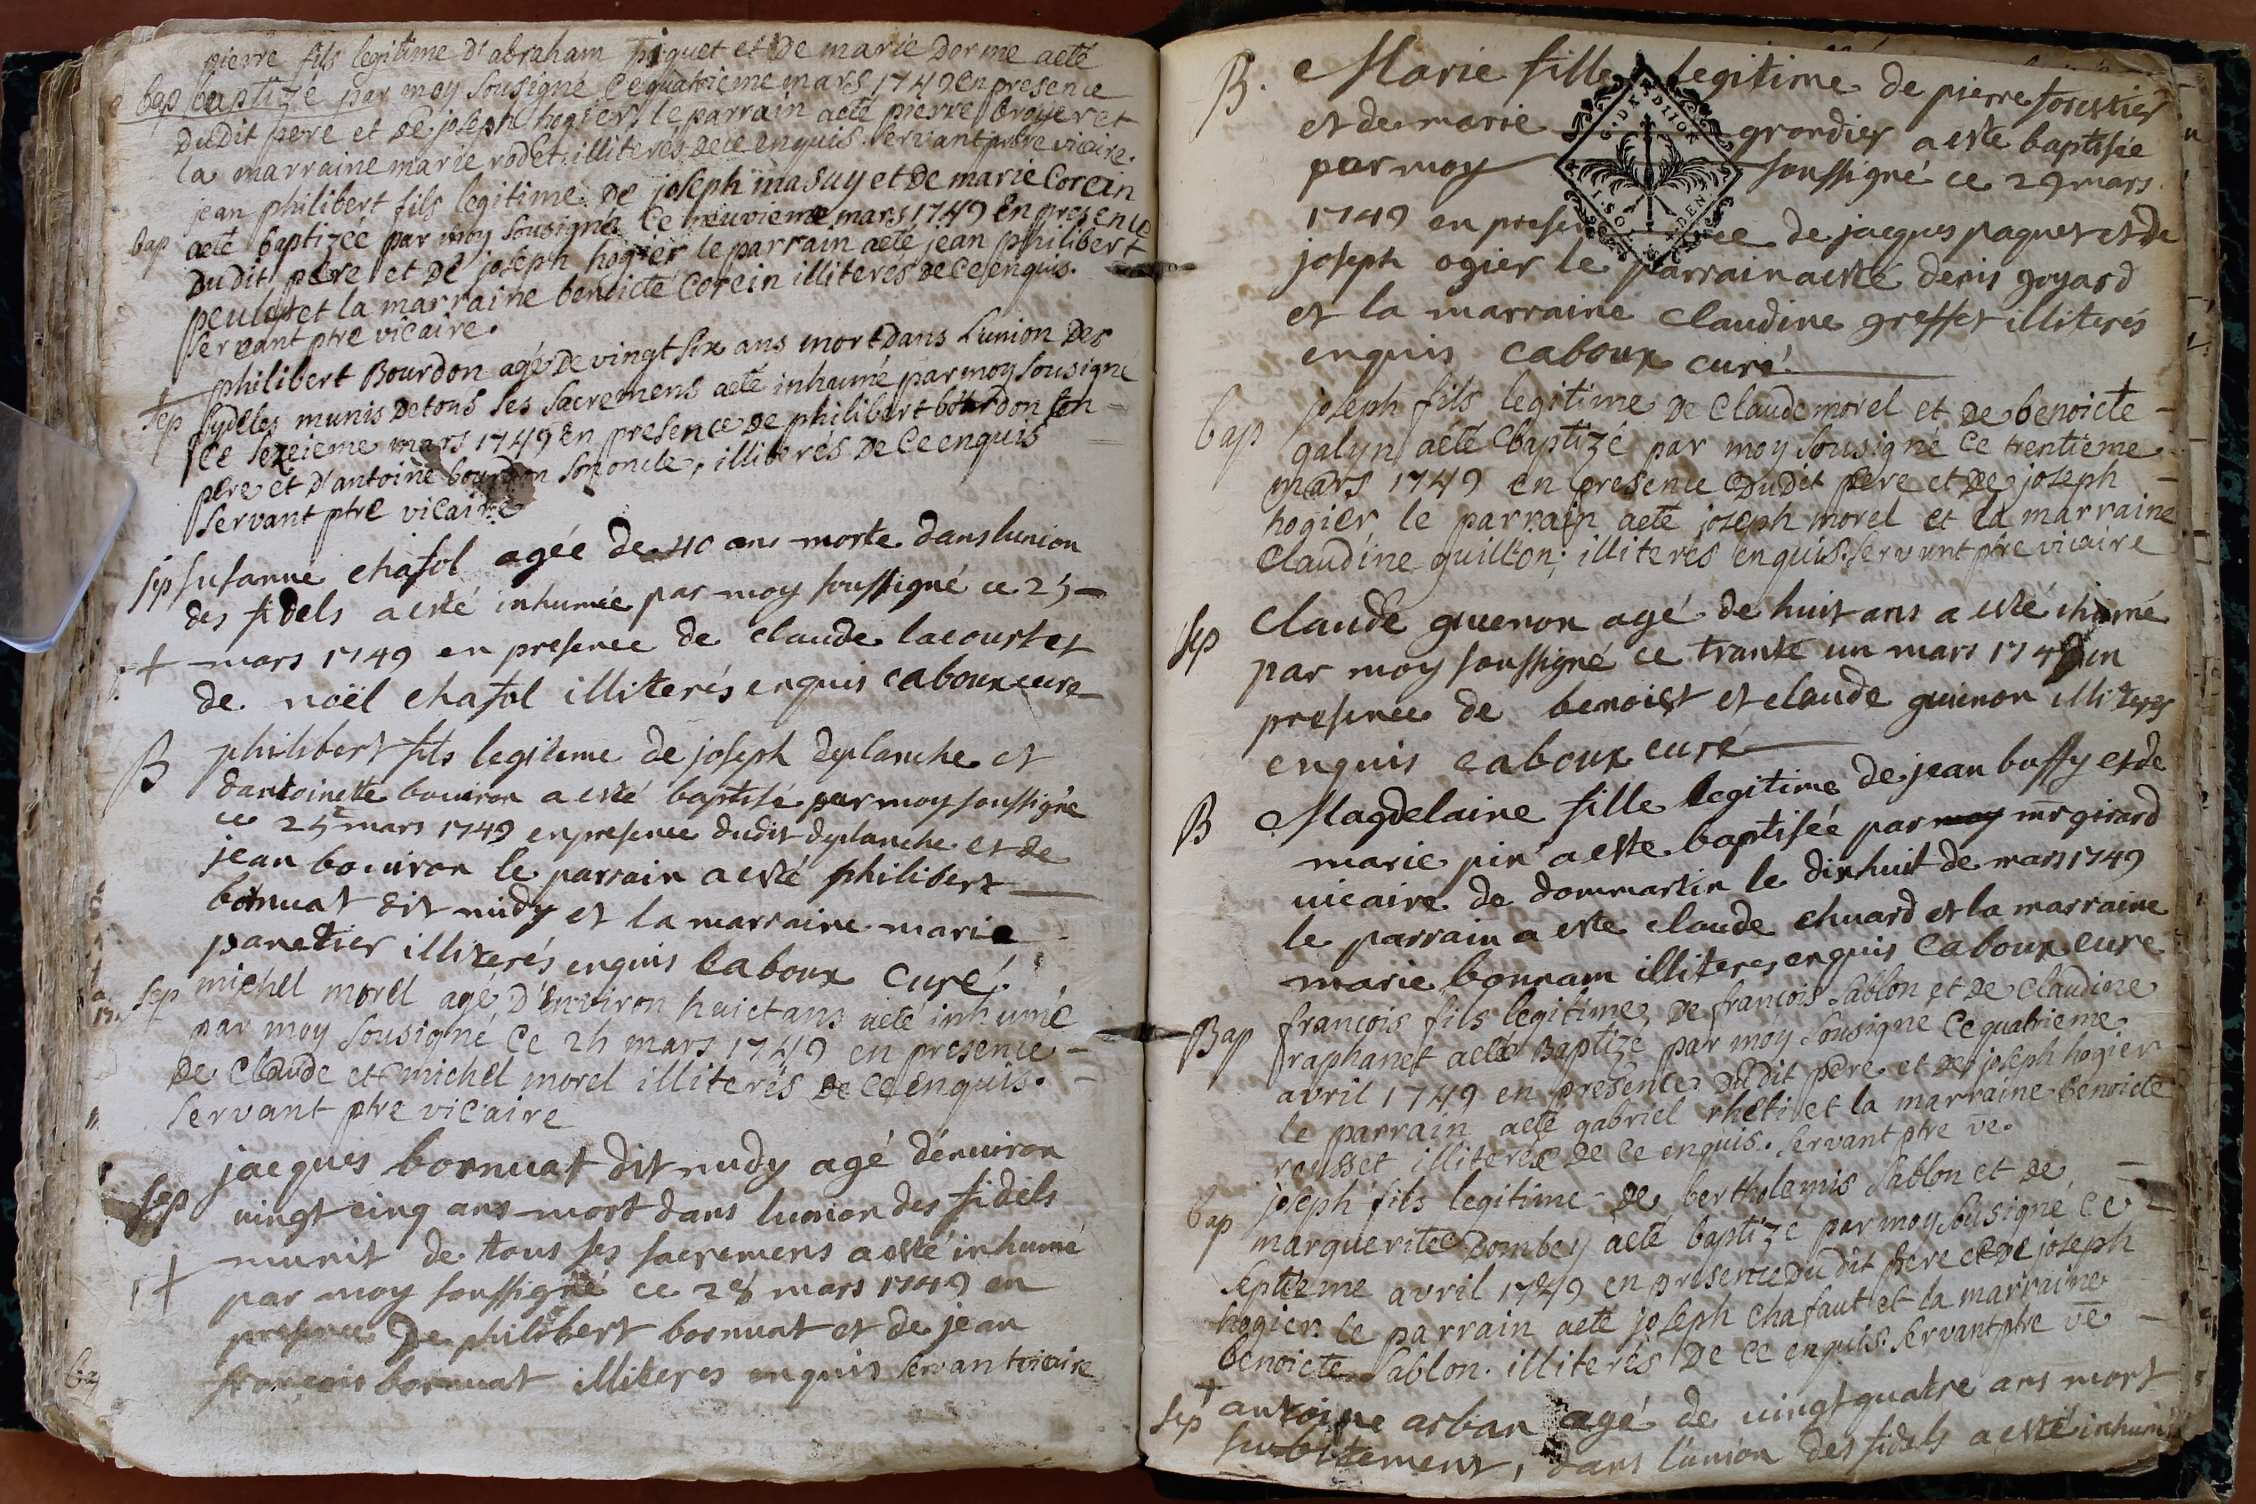 pierre fils legitime d'abraham piquet et De marie Dorme aeté
bap baptizé par moy Sousigné Ce quatrieme mars 1749 En presence
Dudit pere et De joseph hogier le parrain aeté pierre broyer et
la marraine marie rodet illiterés De ce enquis. Servant ptre vicaire.
jean philibert fils legitime De joseph masuy et De marie Corcin
bap aeté baptizée par moy Sousigné Ce neuvieme mars 1749 En presence
Dudit pere et De joseph hogier le parrain aeté jean philibert
peulet et la marraine benoicte Corcin illiterés De Ce enquis.
Servant ptre vicaire.
philibert Bourdon agé De vingt six ans mort Dans L'union Des
sep fydeles munis De tous ses Sacremens aeté inhumé par moy Sousigné
Ce sezieme mars 1749 En presence De philibert bourdon son
pere et D'antoine bourdon son oncle, illiterés De Ce enquis
Servant ptre vicaire
sep susanne chafol agée de 40 ans morte dans lunion
des fidels a esté inhumée par moy soussigné ce 25
+ mars 1749 en presence de claude lacour et
de noël chafol illiterés enquis caboux cure
B philibert fils legitime de joseph deplanche et
dantoinette bouiron a esté baptisé par moy soussigné
ce 25 mars 1749 en presence dudit deplanche et de
jean bouiron le parrain a esté philibert
bornuat dit nudy et la marraine marie
panetier illiterés enquis caboux curé.
sep michel morel agé D'environ huict ans aeté inhumé
par moy Sousigné Ce 2h mars 1749 en presence
De Claude et michel morel illiterés De Ce enquis.
Servant ptre vicaire
jacques bornuat dit nudy agé d'enuiron
sep uingt cinq ans mort dans lunion des fidels
+ munit de tous ses sacremens a esté inhumé
par moy soussigné ce 28 mars 1749 en
presence De philibert bornuat et de jean
francois bornuat illiteres enquis servant vicaire
B. Marie fille legitime de pierre forestier
et de marie grandier a este baptisée
par moy soussigné ce 29 mars
1749 en presence de jacques paquet et de
joseph ogier le parrain a esté denis goyard
et la marraine claudine greffet illiterés
enquis caboux curé
joseph fils legitime De Claude morel et De benoicte
bap galyn aeté baptizé par moy Sousigné Ce trentieme
mars 1749 en presence Dudit pere et De joseph
hogier le parrain aeté joseph morel et la marraine
Claudine guillon; illiterés enquis. Servant ptre vicaire
claude guenon agé de huit ans a esté ihumé
sep par moy soussigné ce trante un mars 1749 en
presence de benoist et claude guenon illiteres
enquis caboux curé
B Magdelaine fille legitime de jean buffy et de
marie pin a este baptisée par moy mr girard
uicaire de dommartin le dixhuit de mars 1749
le parrain a este claude chuard et la marraine
marie bonnam illiteres enquis caboux cure
Bap françois fils legitime De françois Sablon et De Claudine
raphanet aeté Baptizé par moy Sousigné Ce quatrieme
avril 1749 en presence Dudit pere et De joseph hogier
le parrain aeté gabriel rheti et la marraine benoicte
rousset illiterés De Ce enquis. Servant ptre ve.
bap joseph fils legitime De bertholemis Sablon et De
marguerite Dombey aeté baptizé par moy Sousigné Ce
Septieme avril 1749 en presence Dudit pere et De joseph
hogier. le parrain aeté joseph chafaut et la marraine
benoicte Sablon. illiterés De ce enquis. Servant ptre ve
sep + antoine arban agé de uingt quatre ans mort
subitement, dans l'union des fidels a esté inhumé